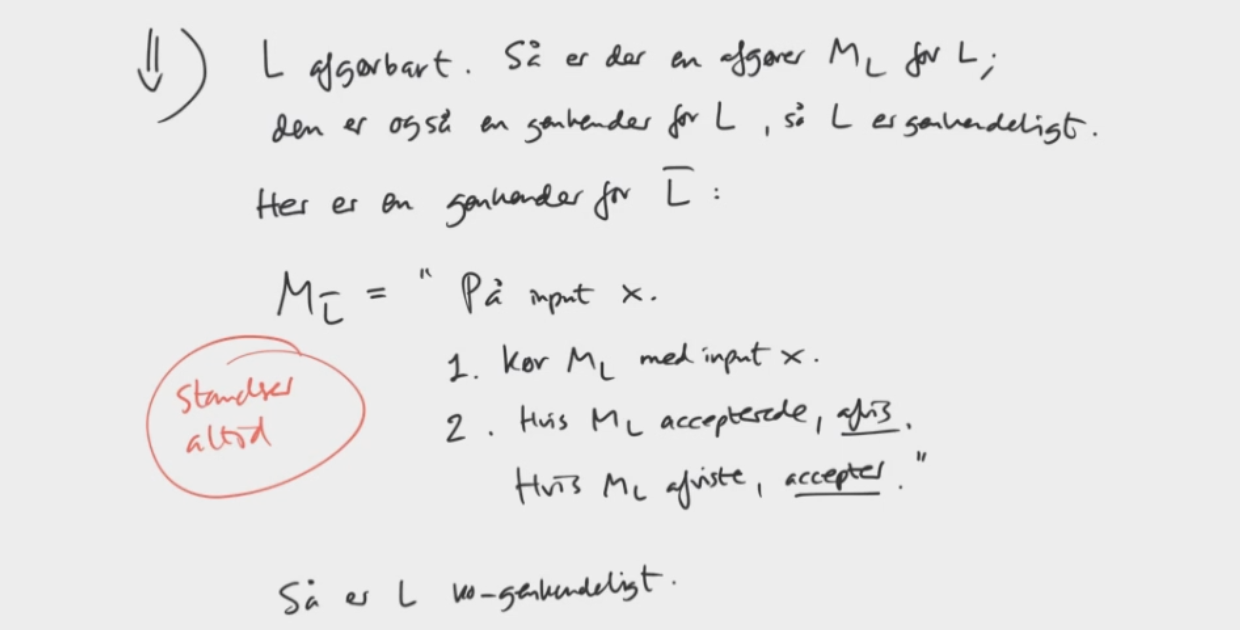 ⇓) L afgørbart. Så er der en afgører M_L for L;
den er også en genkender for L, så L er genkendeligt.
Her er en genkender for L̅ :
M_L̅ = " På input x.
1. Kør M_L med input x.
standser
altid
2. Hvis M_L accepterede, afvis.
Hvis M_L afviste, accepter."
Så er L ko-genkendeligt.